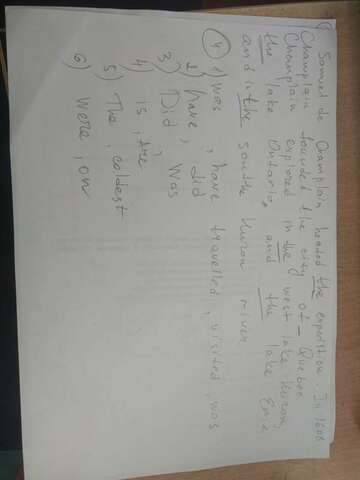 Samuel de Champlain headed the expedition. In 1608
Champlain founded the city of Quebec.
Champlain explored in the west lake Huron,
the lake Ontario and the lake Erie
and in the south Huron river.
4 1) was, have travelled, visited, was
2) have, did
3) Did, was
4) is, the
5) The, coldest
6) were, on